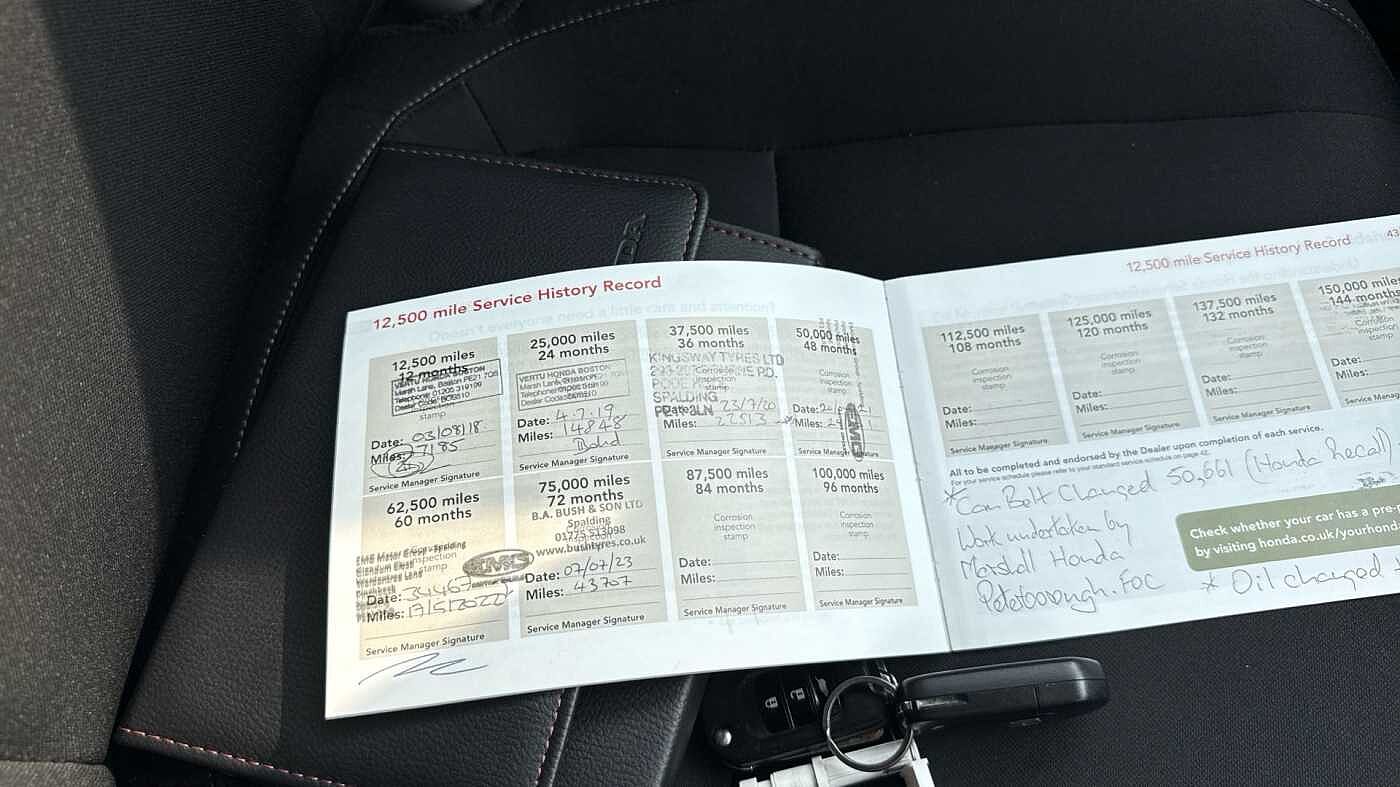 12,500 mile Service History Record
12,500 miles
12 months
VERTU HONDA BOSTON
Marsh Lane, Boston PE21 7QS
Telephone: 01205 319199
stamp
Date: 03/08/18
Miles:
Service Manager Signature
25,000 miles
24 months
VERTU HONDA BOSTON
Marsh Lane
Date: 4.7.19
Miles: 14848
Service Manager Signature
37,500 miles
36 months
KINGSWAY TYRES LTD
Corrosion
inspection
stamp
SPALDING
Date: 23/7/20
Miles: 22513
Service Manager Signature
50,000 miles
48 months
Corrosion
inspection
stamp
Date:
Miles:
EMG
Service Manager Signature
62,500 miles
60 months
inspection
stamp
EMG
Date: 34467
Miles: 17/5/2022
Service Manager Signature
75,000 miles
72 months
B.A. BUSH & SON LTD
Spalding
01775 513098
www.bushtyres.co.uk
Date: 07/07/23
Miles: 43707
Service Manager Signature
87,500 miles
84 months
Corrosion
inspection
stamp
Date:
Miles:
Service Manager Signature
100,000 miles
96 months
Corrosion
inspection
stamp
Date:
Miles:
Service Manager Signature
12,500 mile Service History Record
43
112,500 miles
108 months
Corrosion
inspection
stamp
Date:
Miles:
Service Manager Signature
125,000 miles
120 months
Corrosion
inspection
stamp
Date:
Miles:
Service Manager Signature
137,500 miles
132 months
Corrosion
inspection
stamp
Date:
Miles:
Service Manager Signature
150,000 miles
144 months
Corrosion
inspection
stamp
Date:
Miles:
Service Manager
All to be completed and endorsed by the Dealer upon completion of each service.
For your service schedule please refer to your standard service schedule on page 42.
* Cam Belt Changed 50,661 (Honda Recall)
Work undertaken by
Marshall Honda
Peterborough. FOC
Check whether your car has a pre-
by visiting honda.co.uk/yourhond
* Oil changed